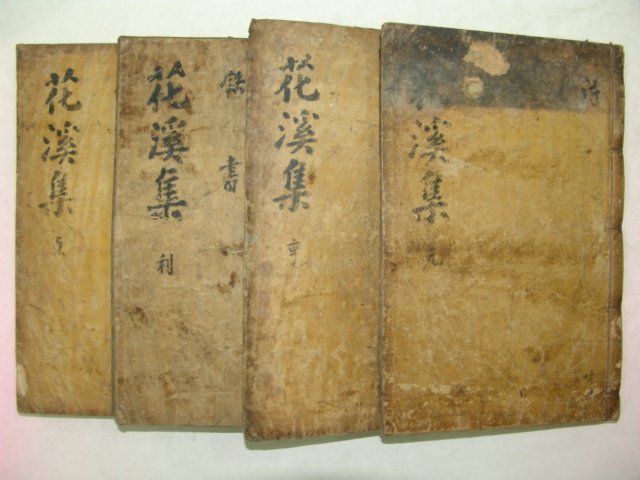 詩
溪集
元
花溪集
亨
書
花溪集
利
花溪集
貞